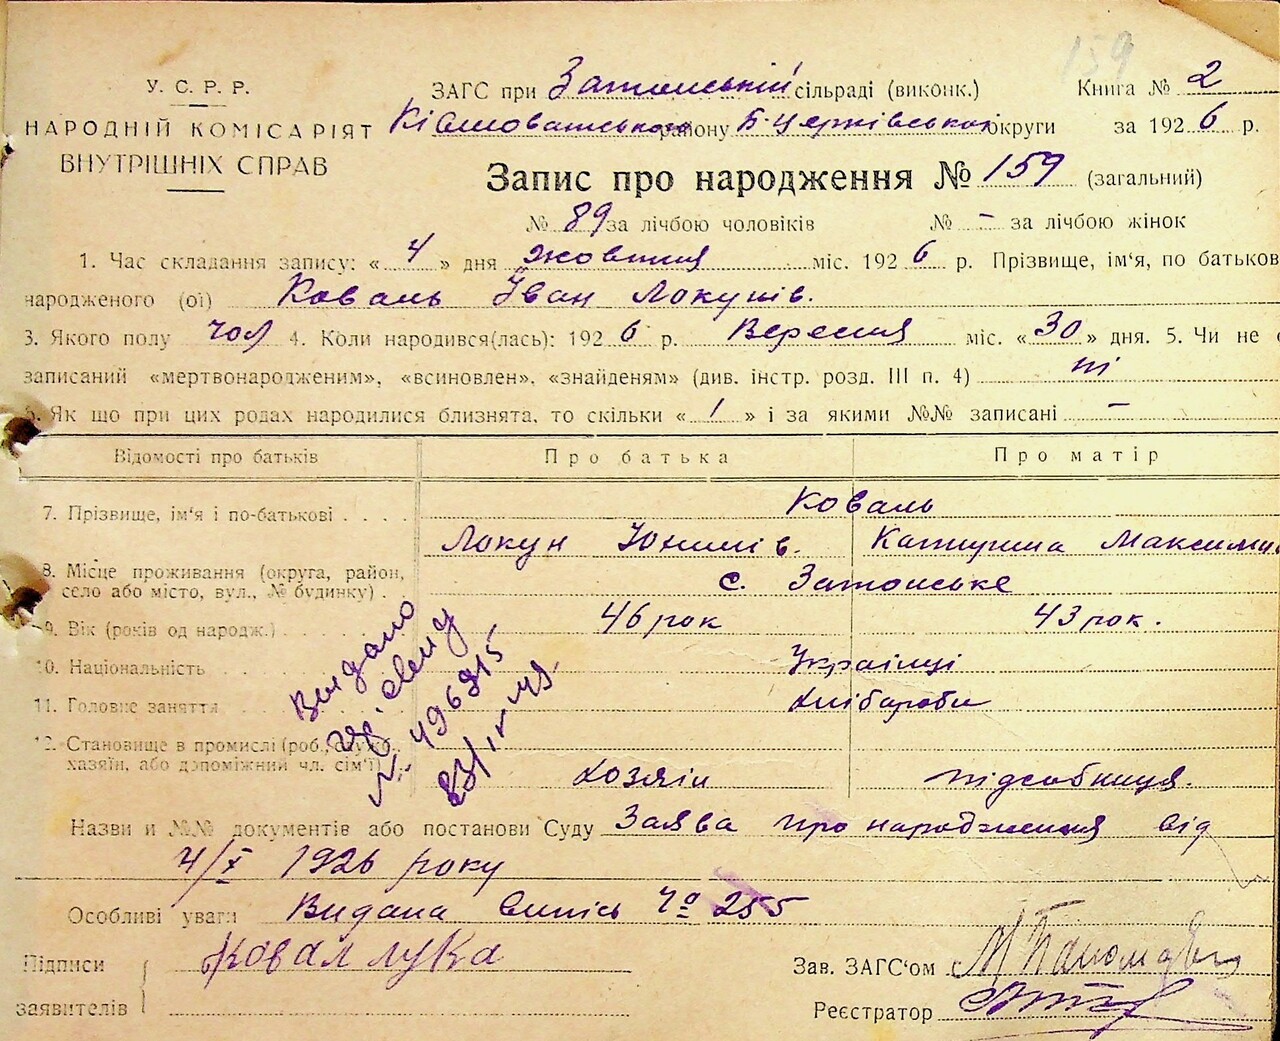 159
У. С. Р. Р.
НАРОДНІЙ КОМІСАРІЯТ
ВНУТРІШНІХ СПРАВ
ЗАГС при Затонській сільраді (виконк.) Книга № 2
району Б-Церківської округи за 1926 р.
Запис про народження № 159 (загальний)
№ 89 за лічбою чоловіків № – за лічбою жінок
1. Час складання запису: «4» дня жовтня міс. 1926 р. Прізвище, ім'я, по батьков
народженого (ої) Коваль Іван
3. Якого полу чол 4. Коли народився(лась): 1926 р. Вересня міс. «30» дня. 5. Чи не
записаний «мертвонародженим», «всиновлен», «знайденям» (див. інстр. розд. III п. 4) ні
6. Як що при цих родах народилися близнята, то скільки «1» і за якими №№ записані –
Відомості про батьків Про батька Про матір
7. Прізвище, ім'я і по-батькові . . . . Коваль
8. Місце проживання (округа, район,
село або місто, вул., № будинку) . с. Затонське
9. Вік (років од народж.) 46 рок 43 рок.
10. Національність Українці
11. Головне заняття Хлібароби
12. Становище в промислі (роб., служб.,
хазяїн, або допоміжний чл. сім'ї) Хозяін підсобниця.
Видано
№ 496915
Назви и №№ документів або постанови Суду Заява про народження від
4/X 1926 року
Особливі уваги Видана випись № 255
Підписи Ковал лука
заявителів
Зав. ЗАГС'ом
Реєстратор